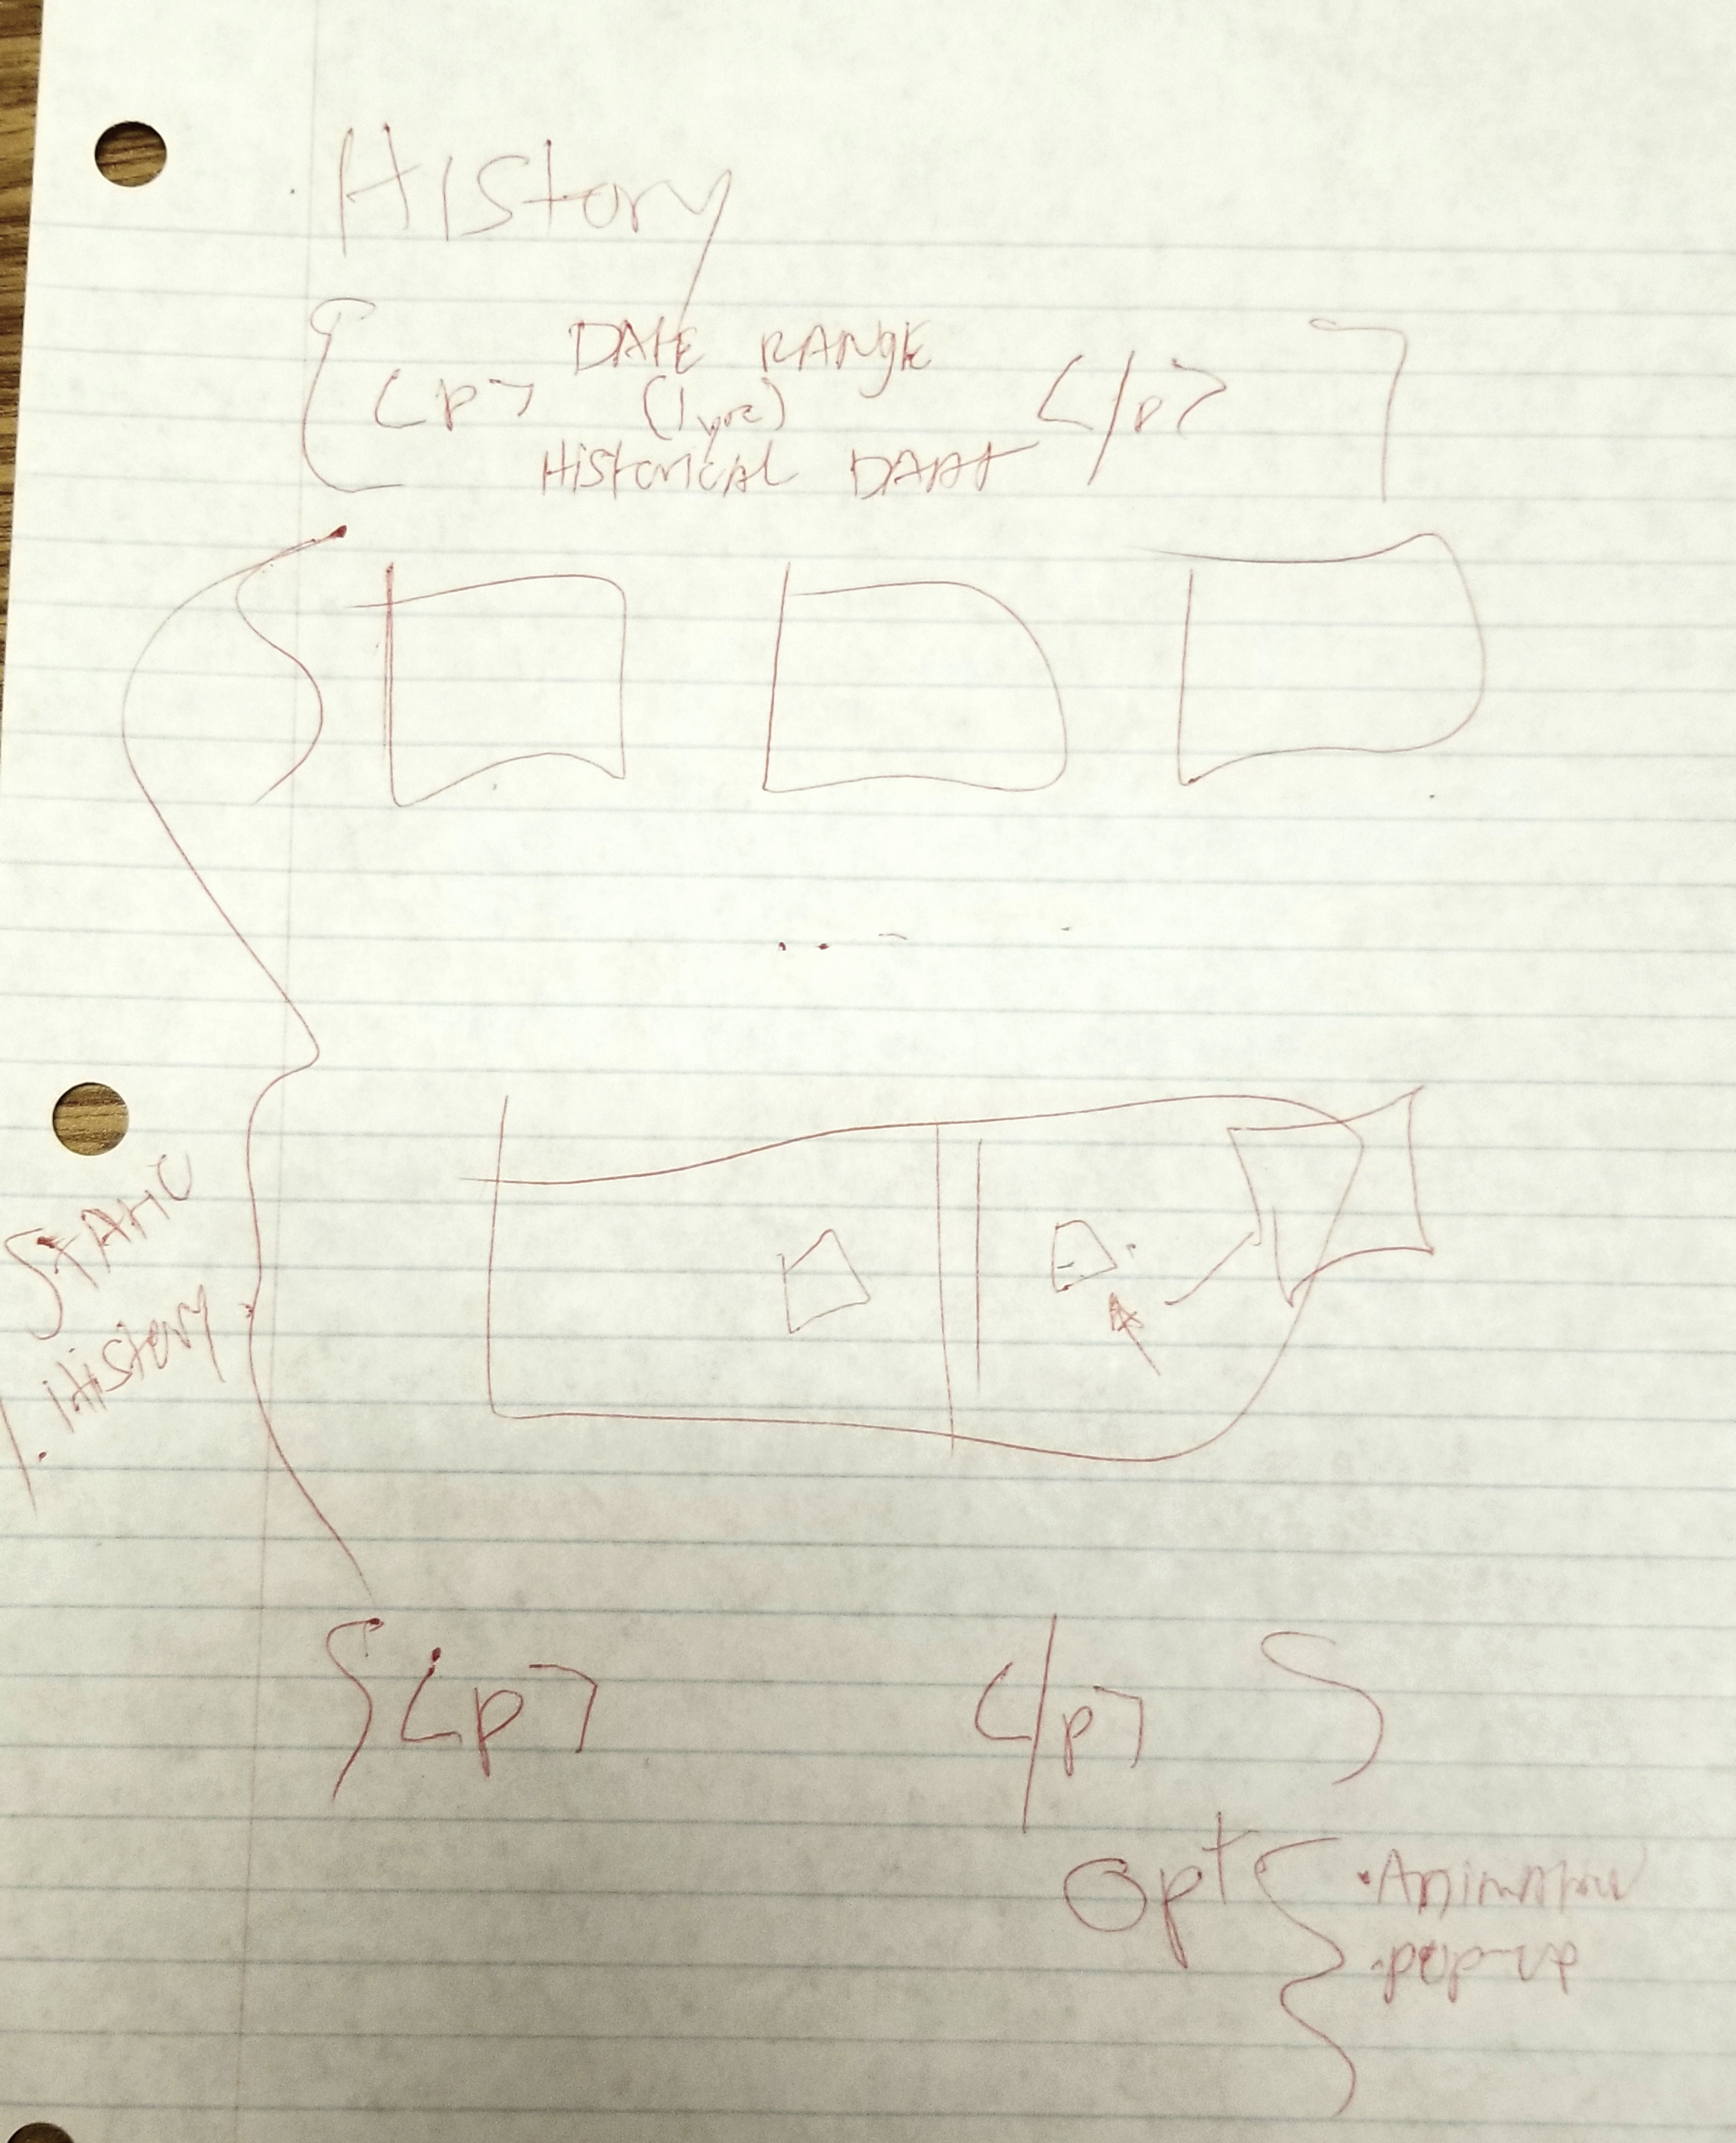 History
DATE RANGE
<p> (1 year) </p>
HistoricAL DAAT
STATIC
1. History
{<p> </p>}
opt { • Animation
• pop-up